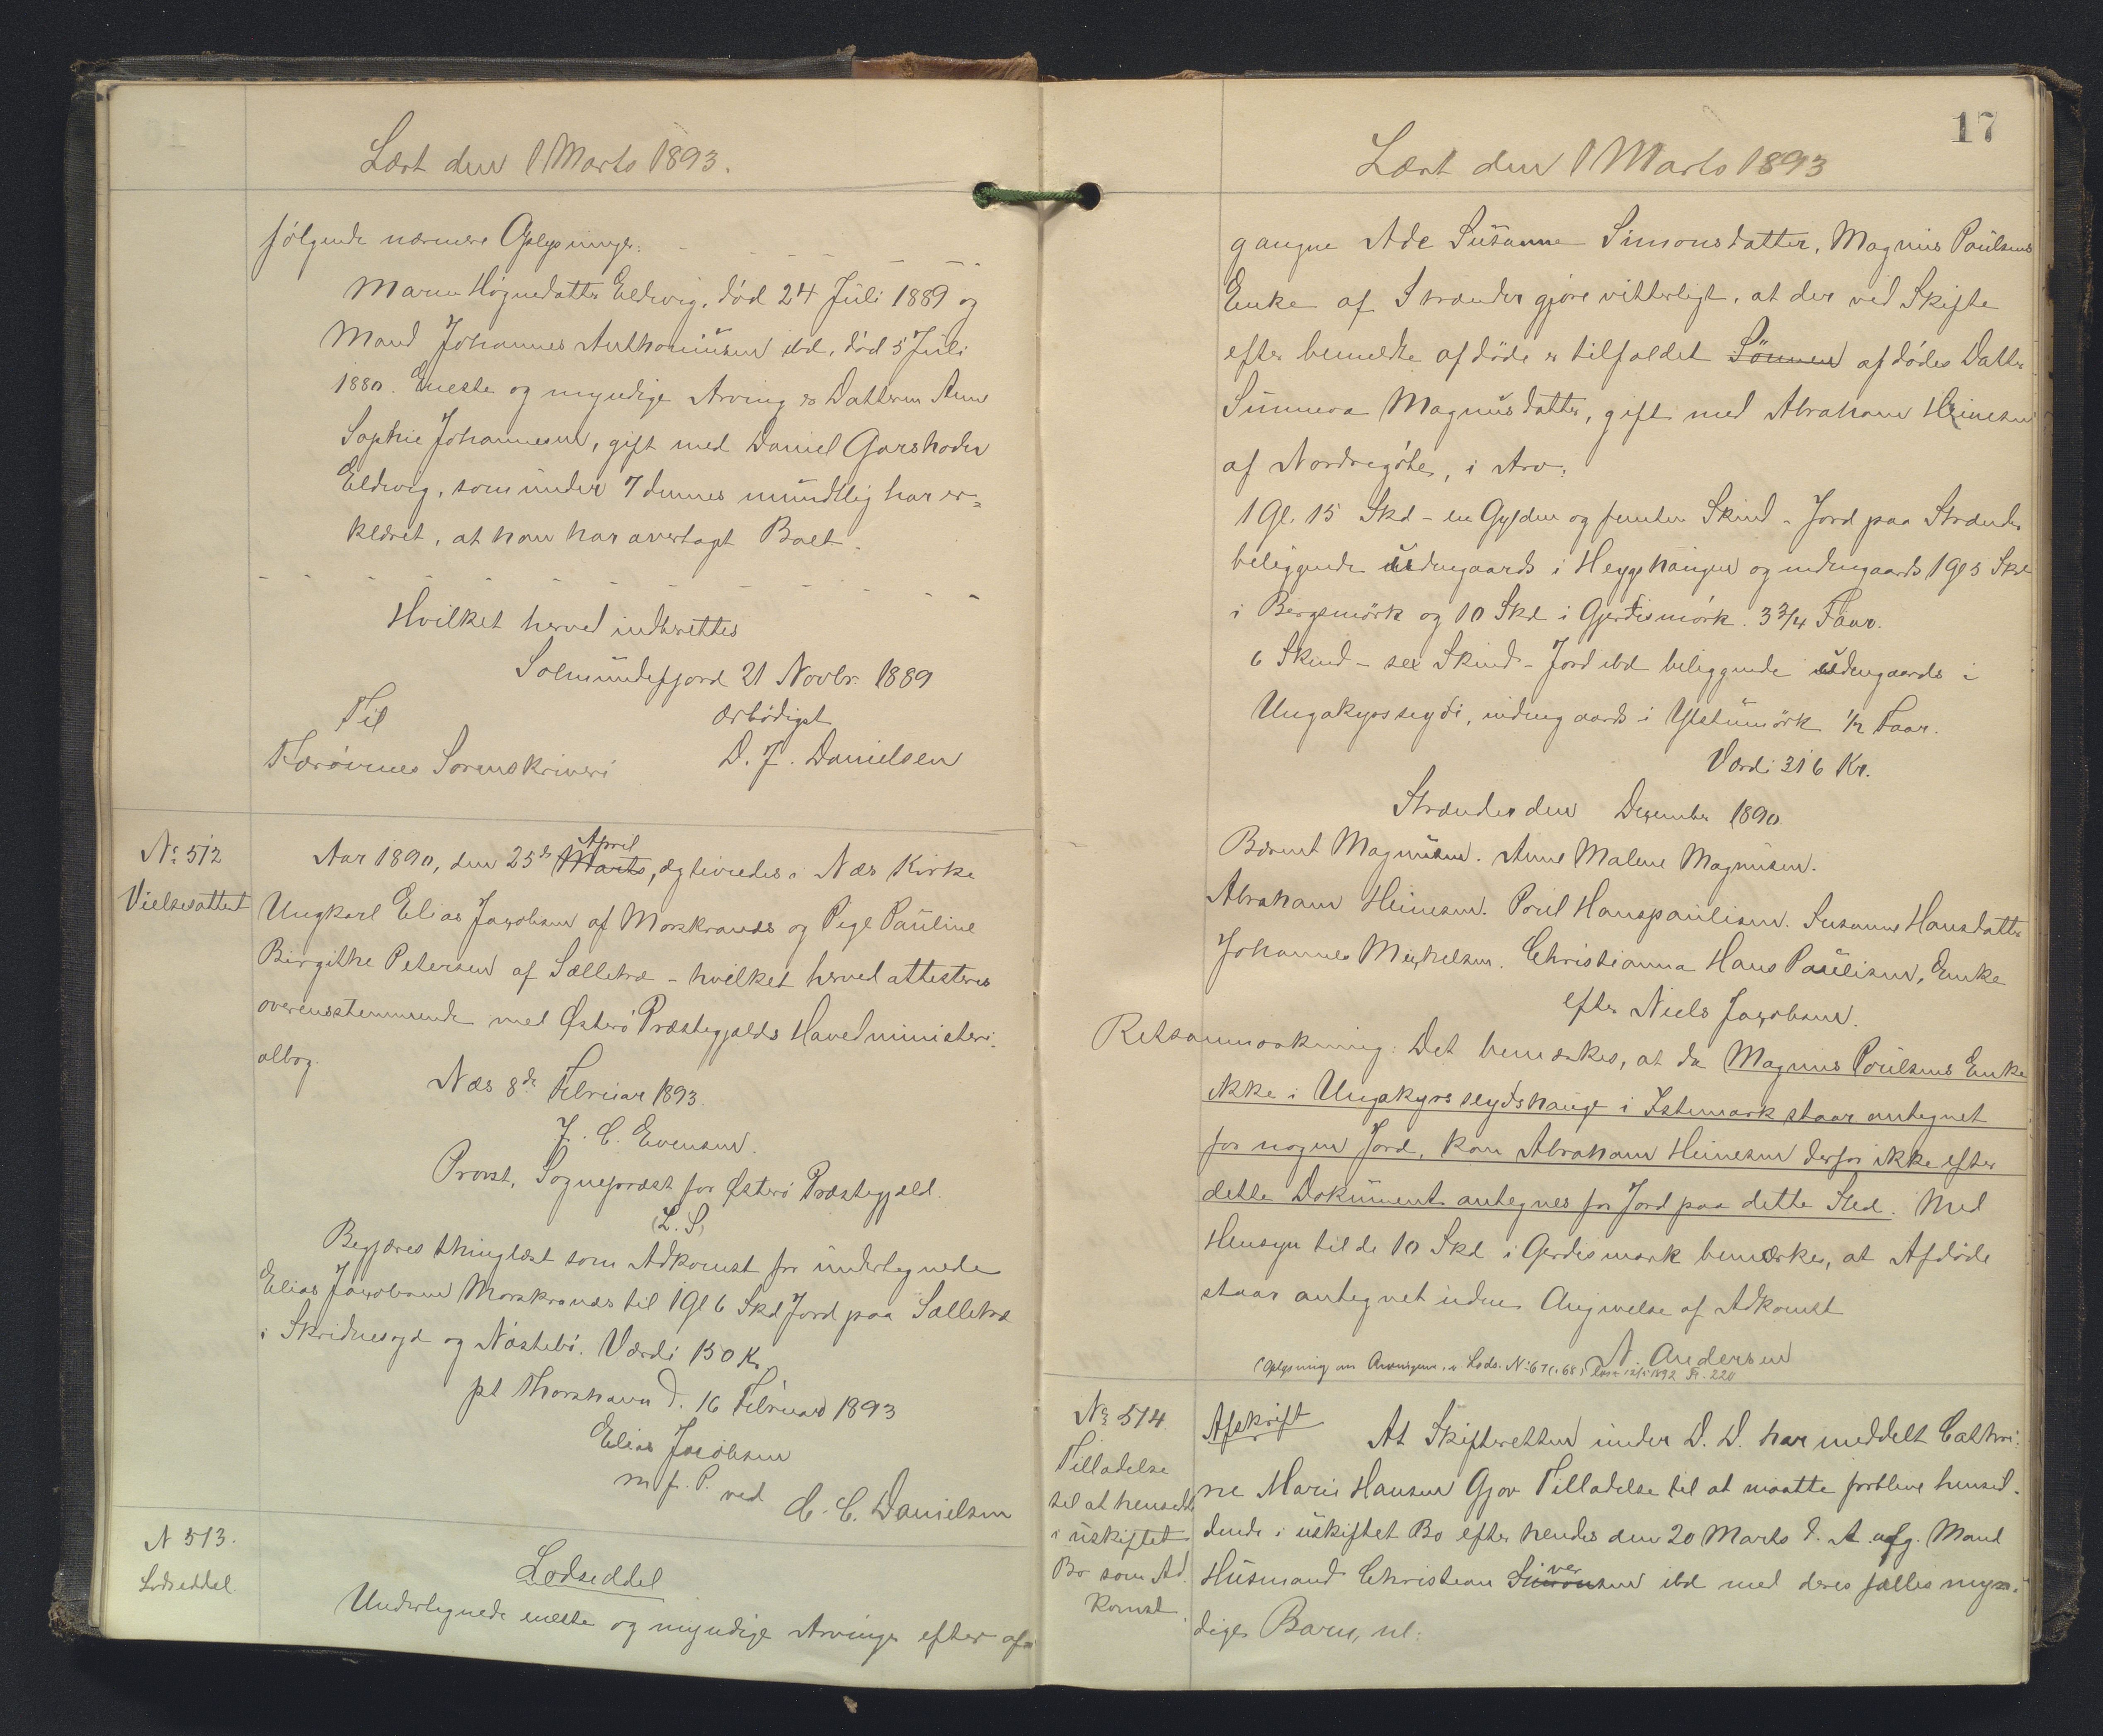 Læst den 1 Marts 1893.
følgende nærmere Oplysninger:
Maren Høgnedatter Eldevig, død 24 Juli 1889 og
Mand Johannes Anthoniusen ibd, død 5 Juli
1880. Eneste og myndige Arving er Datteren Anne
Sophie Johannesen, gift med Daniel Garshoder
Eldevig, som under 7 dennes mundtlig har er=
klæret, at han har overtaget Boet.
Hvilket herved indberettes
Solmundefjord 21 Novbr. 1889
Til ærbødigst
Færøernes Sorenskriveri D. J. Danielsen
No 512
Vielsesattest
Aar 1890, den 25de Marts April, ægteviedes i Næs Kirke
Ungkarl Elias Jacobsen af Morskranes og Pige Pauline
Birgithe Petersen af Selletræ - hvilket herved attesteres
overensstemmende med Østerø Præstegjælds Hovedministeri-
albog.
Næs 8de Februar 1893.
J. C. Evensen.
Provst, Sognepræst for Østerø Præstegjæld.
(L.S)
Begjæres thinglæst som Adkomst for undertegnede
Elias Jacobsen Morskranæs til 1 Gl 6 Skd Jord paa Selletræ
i Skridnesogd og Nøstebø. Værdi 150 Kr.
pt Thorshavn d. 16 Februar 1893
Elias Jacobsen
m. f. P. ved C. C. Danielsen
N 513.
Lodseddel
Lodseddel
Undertegnede eneste og myndige Arvinger efter af-
17
Læst den 1 Marts 1893
gangne Ade Susanne Simonsdatter, Magnus Poulsens
Enke af Strænder gjøre vitterligt, at der ved Skifte
efter bemeldte afdøde er tilfaldet Sønnen afdødes Datter
Sunneva Magnusdatter, gift med Abraham Heinesen
af Nordregøte, i Arv:
1 Gl. 15 Skd - en Gylden og femten Skind - Jord paa Strænder
beliggende udengaards i Heygshaugen og indengaards 1 Gl 5 Skd
i Bergsmørk og 10 Skd i Gjerdismørk. 3 3/4 Faar.
6 Skind - sex Skind - Jord ibd beliggende udengaards i
Ungakyrsseydi, indengaards i Ystumørk 1/2 Faar.
Værdi 316 Kr.
Strænder den December 1890
Berent Magnusen. Anne Malene Magnusen.
Abraham Heinesen. Poul Hanspaulisen. Susanne Hansdatter
Johannes Michelsen. Christianna Hans Paulisen, Enke
efter Niels Jacobsen.
Retsanmærkning: Det bemærkes, at da Magnus Poulsens Enke
ikke i Ungakyrsseydshauge i Istemark staar antegnet
for nogen Jord, kan Abraham Heinesen derfor ikke efter
dette Dokument antegnes for Jord paa dette Sted. Med
Hensyn til de 10 Skd i Gerdismark bemærkes, at Afdøde
staar antegnet uden Angivelse af Adkomst
N. Andersen
(Oplysning om Arvingerne, se Lods. No 67 (i 68) læst 12/5 1892 Fr. 220
No 514.
Tilladelse
til at hensidde
i uskiftet
Bo som Ad-
komst.
Afskrift
At Skifteretten under D. D. har meddelt Cathri-
ne Marie Hansen Gjov Tilladelse til at maatte forblive hensid-
dende i uskiftet Bo efter hendes den 20 Marts d. A. afg. Mand
Husmand Christian Simonsen Iver ibd med deres fælles myn-
dige Barn, nl: